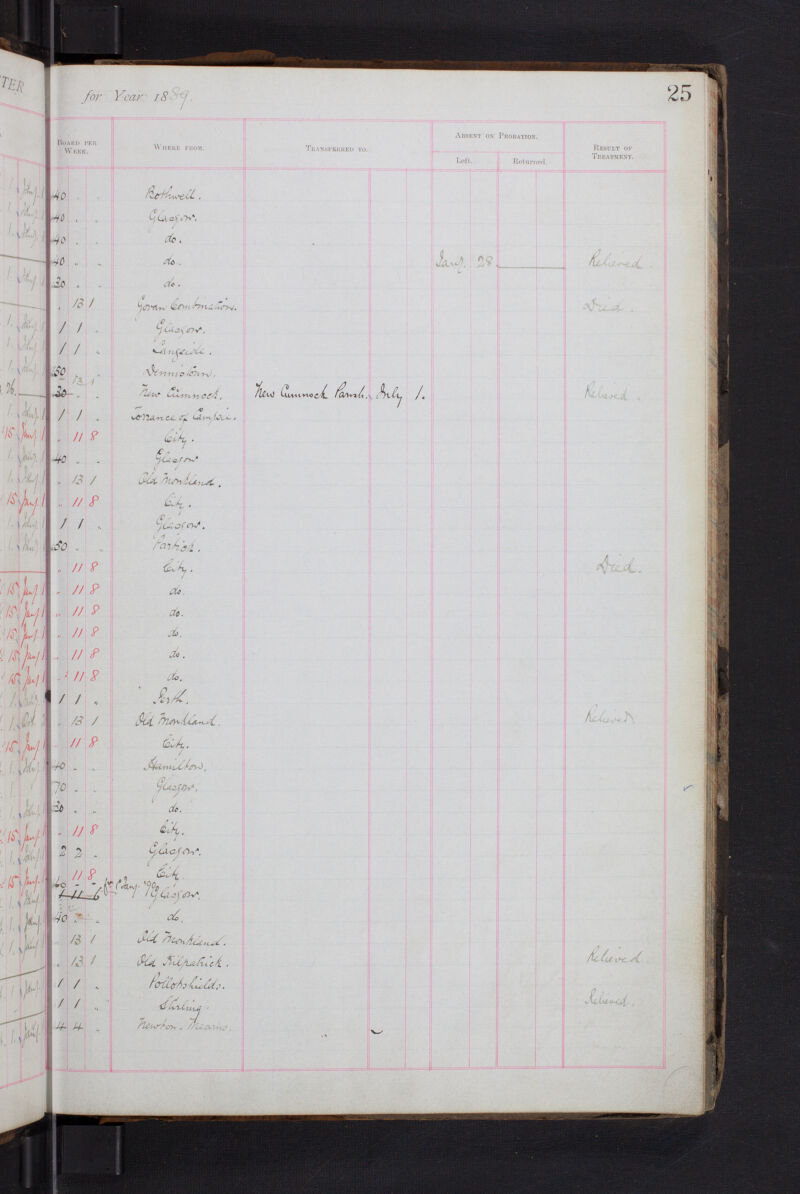 TER
for Year 1889.
25
BOARD PER WEEK.
WHERE FROM.
TRANSFERRED TO.
ABSENT ON PROBATION.
Left.
Returned.
RESULT OF TREATMENT.
40 . . Bothwell.
40 . . Glasgow.
40 . . do.
40 . . do. Jany. 28. Relieved.
30 . . do.
. 13 1 Govan Combination. Died.
1 1 . Glasgow.
1 1 . Langside.
50 Dennistoun.
13 1
30 . . New Cumnock. New Cumnock Parish. July 1. Relieved.
1 1 . Torrance of Campsie.
. 11 8 City.
40 . . Glasgow
. 13 1 Old Monkland.
. 11 8 City.
1 1 . Glasgow.
50 . . Partick.
. 11 8 City. Died.
. 11 8 do.
. 11 8 do.
. 11 8 do.
. 11 8 do.
. 11 8 do.
1 1 . Perth.
. 13 1 Old Monkland. Relieved
. 11 8 City.
40 . . Hamilton.
70 . . Glasgow.
30 . . do.
. 11 8 City.
2 2 . Glasgow.
. 11 8 City
60 - - fm 1 Jany. '90
1 11 6 Glasgow.
40 . . do.
. 13 1 Old Monkland.
. 13 1 Old Kilpatrick. Relieved.
1 1 . Pollokshields.
1 1 . Stirling. Relieved.
4 4 . Newton-Mearns.